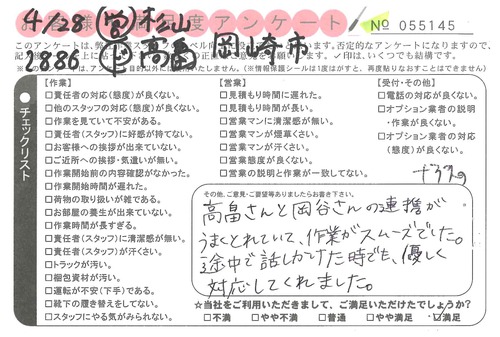 4/28 (営)杉山
お客様満足度アンケート
No 055145
2886 高畠 岡崎市
チェックリスト
【作業】
□責任者の対応(態度)が良くない。
□他のスタッフの対応(態度)が良くない。
□作業を見ていて不安がある。
□責任者(スタッフ)に好感が持てない。
□お客様への挨拶が出来ていない。
□ご近所への挨拶・気遣いが無い。
□作業開始前の内容確認がなかった。
□作業開始時間が遅れた。
□荷物の取り扱いが雑である。
□お部屋の養生が出来ていない。
□作業時間が長すぎる。
□責任者(スタッフ)に清潔感が無い。
□責任者(スタッフ)が汗くさい。
□トラックが汚い。
□梱包資材が汚い。
□運転が不安(下手)である。
□靴下の履き替えをしてない。
□スタッフにやる気がみられない。
【営業】
□見積もり時間に遅れた。
□見積もり時間が長い。
□営業マンに清潔感が無い。
□営業マンが煙草くさい。
□営業マンが汗くさい。
□営業態度が良くない。
□営業の説明と作業が一致してない。
【受付・その他】
□電話の対応が良くない。
□オプション業者の説明・作業が良くない。
□オプション業者の対応(態度)が良くない。
その他、ご意見・ご要望等ありましたらお書き下さい。
高畠さんと岡谷さんの連携が
うまくとれていて、作業がスムーズでした。
途中で話しかけた時でも、優しく
対応してくれました。
☆当社をご利用いただきまして、ご満足いただけたでしょうか？
□不満 □やや不満 □普通 □やや満足 ☑満足